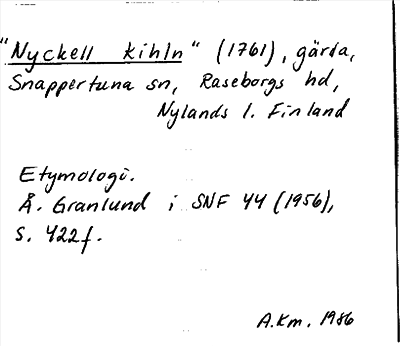 "Nyckell kihln" (1761), gärda,
Snappertuna sn, Raseborgs hd,
Nylands l. Finland
Etymologi.
Å. Granlund i SNF 44 (1956),
s. 422f.
A.Km. 1986